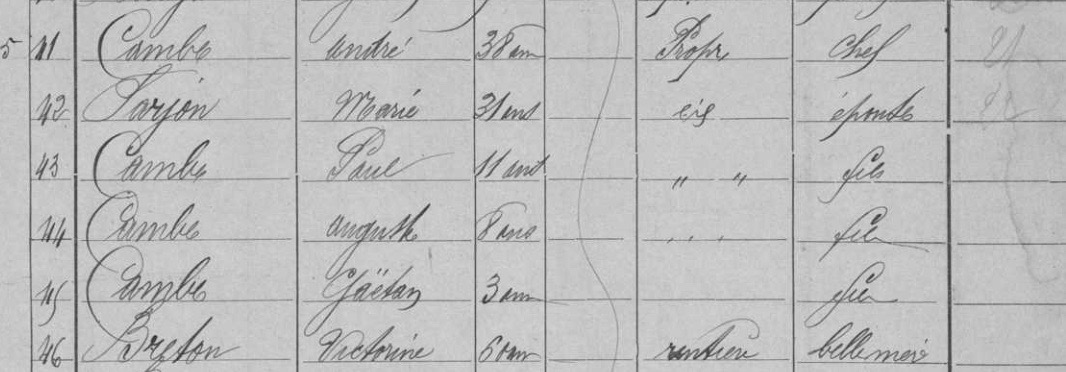 5 41 Cambe André 38 ans Propr chef
42 Marie 31 ans épouse
43 Cambe Paul 11 ans " " fils
44 Cambe Auguste 8 ans " " fils
45 Cambe Gaëtan 3 ans fils
46 Breton Victorine 60 ans rentière belle mère